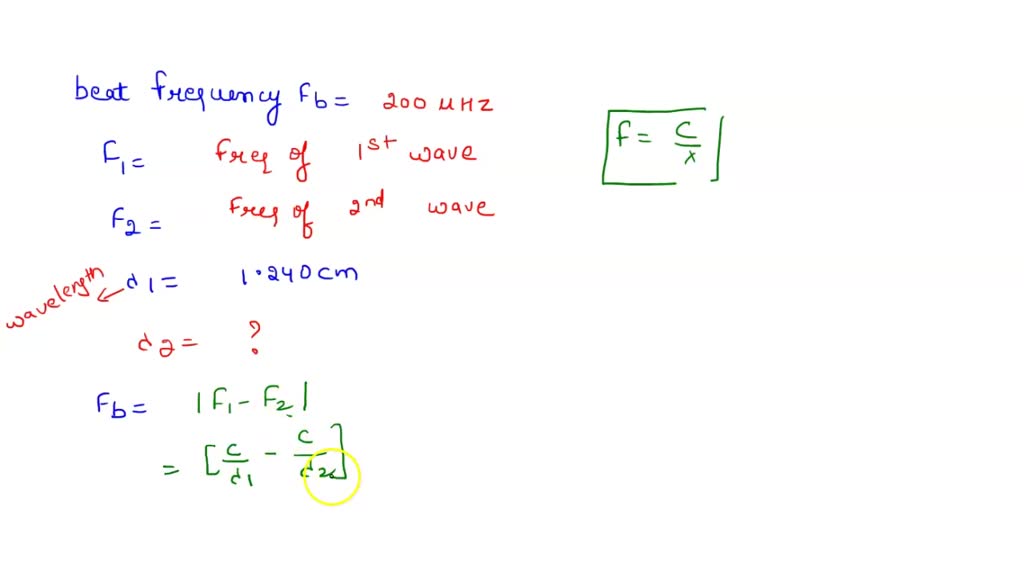 beat frequency Fb = 200 MHZ
F1 = freq of 1st wave
F2 = freq of 2nd wave
wavelength
λ1 = 1.240cm
λ2 = ?
Fb = |F1 - F2|
= [c/λ1 - c/λ2]
f = c/λ